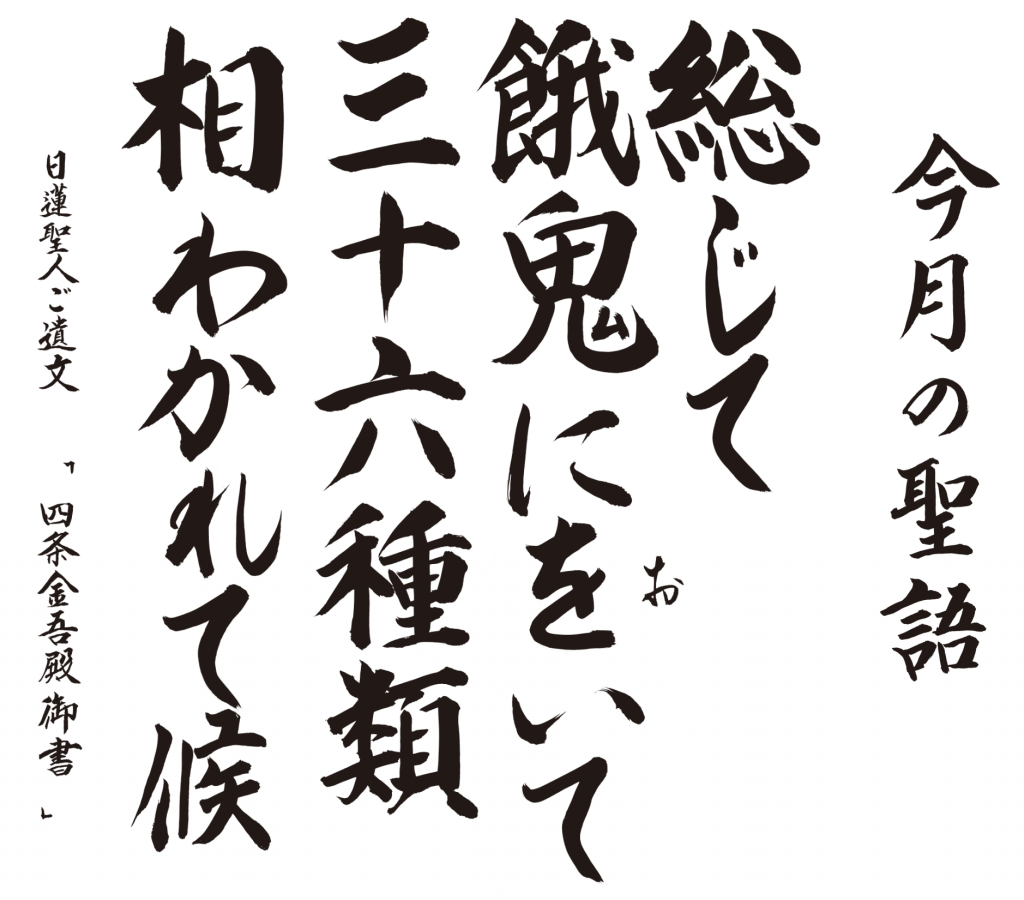 今月の聖語
総じて
餓鬼にをいて
お
三十六種類
相わかれて候
日蓮聖人ご遺文 「四条金吾殿御書」